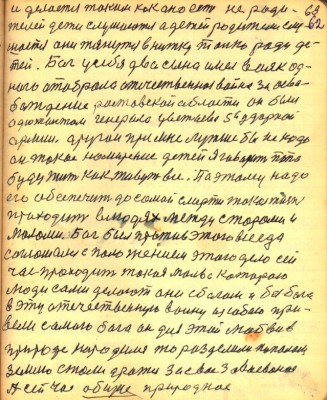 и делается таким как оно есть не роди- 63
телей дети слушаются а детей родители слу- 62
шаются они тянутся в нитку только ради де-
тей. Бог успел два сына имел вояк од-
ного отобрала отечественная война за осво-
бождение ростовской области он был
адъютантом генерала цветаева 5й ударной
армии. другой при мне лучше бы не надо
он такое намерение детей я говорит папа
буду жить как живут все. Поэтому надо
его обеспечить до самой смерти так оно и
приходит в людях между старыми и
малыми Бог был против этого всегда
согласились с положением этого дело сей
час проходить такая мысль которою
люди сами делают они с богом и без бога
в эту отечественную войну из собою при-
вели самого бога он для этой любви в
природе народился то разделили пополам
землю стали драться за свои завоевания
А сейчас общее природное